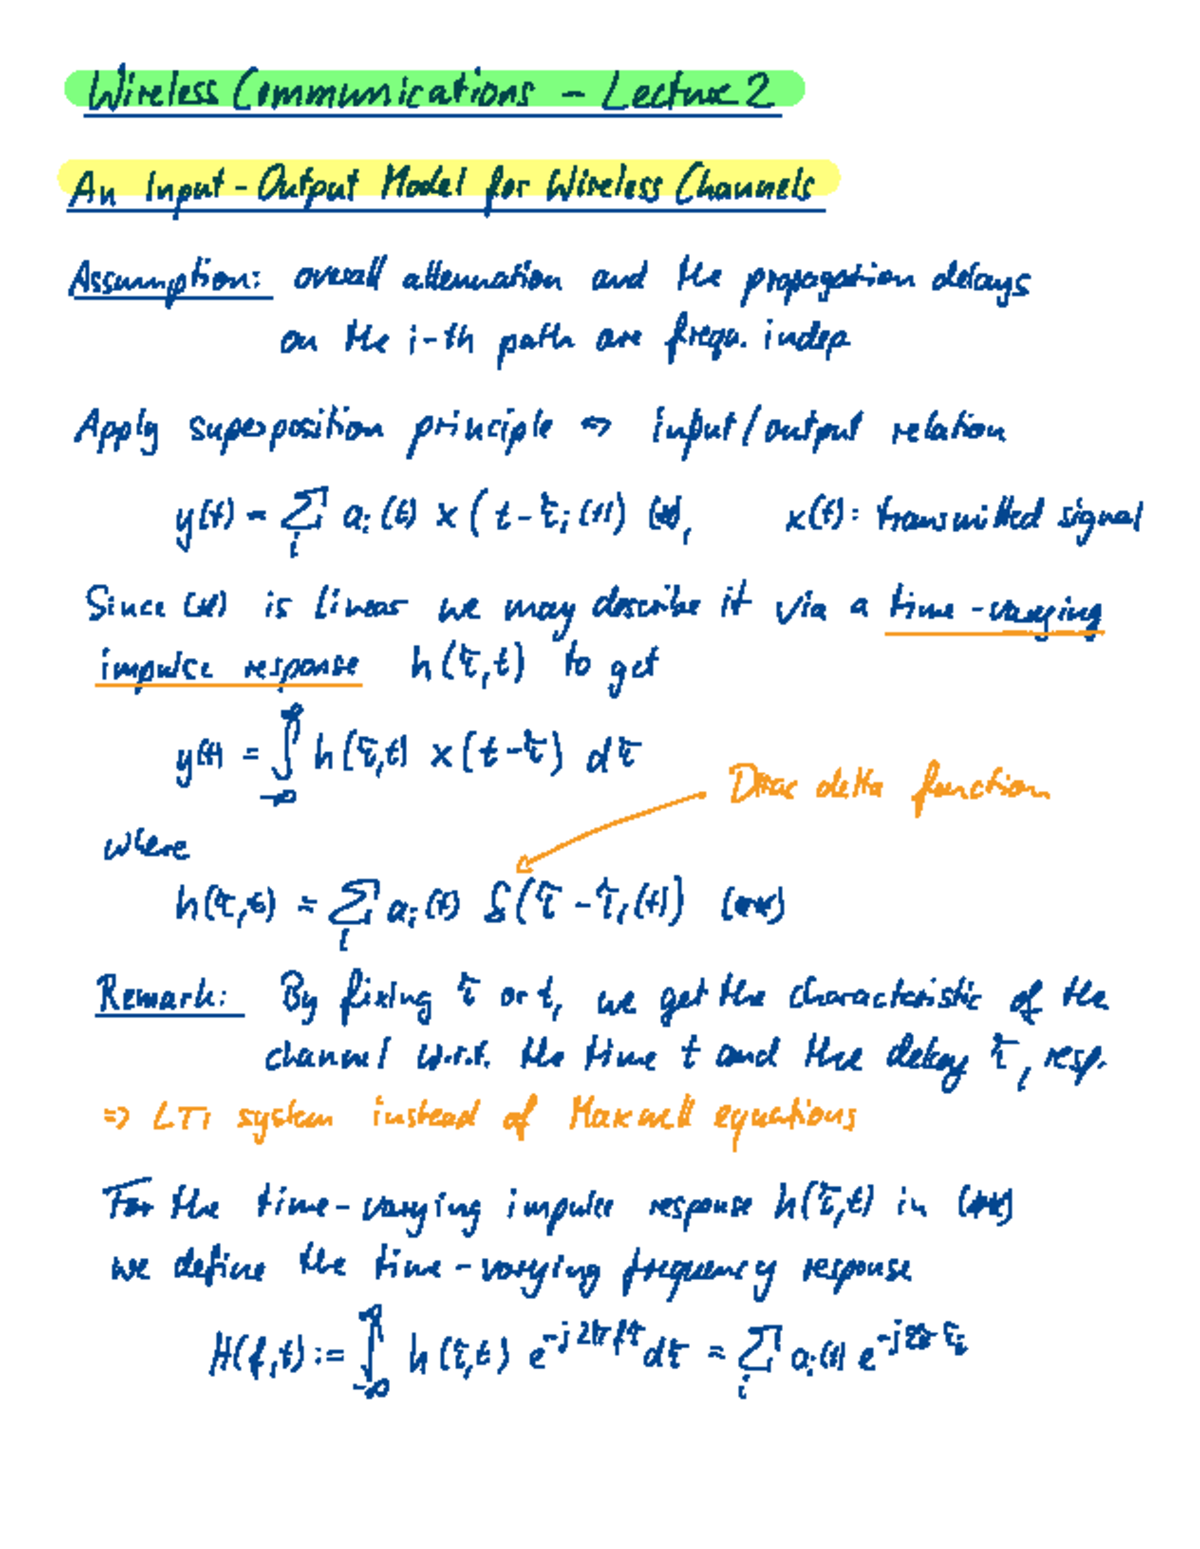 Wireless Communications - Lecture 2
An Input-Output Model for Wireless Channels
Assumption: overall attenuation and the propagation delays
on the i-th path are frequ. indep
Apply superposition principle => input/output relation
y(t) = ∑_i a_i(t) x(t-τ_i(t)) (*), x(t): transmitted signal
Since (*) is linear we may describe it via a time-varying
impulse response h(τ,t) to get
y(t) = ∫_{-∞}^{∞} h(τ,t) x(t-τ) dτ
Dirac delta function
where
h(τ,t) = ∑_i a_i(t) δ(τ-τ_i(t)) (**)
Remark: By fixing τ or t, we get the characteristic of the
channel w.r.t. the time t and the delay τ, resp.
=> LTI system instead of Maxwell equations
For the time-varying impulse response h(τ,t) in (**)
we define the time-varying frequency response
H(f,t) := ∫_{-∞}^{∞} h(τ,t) e^{-j2πfτ} dτ = ∑_i a_i(t) e^{-j2π τ_i}